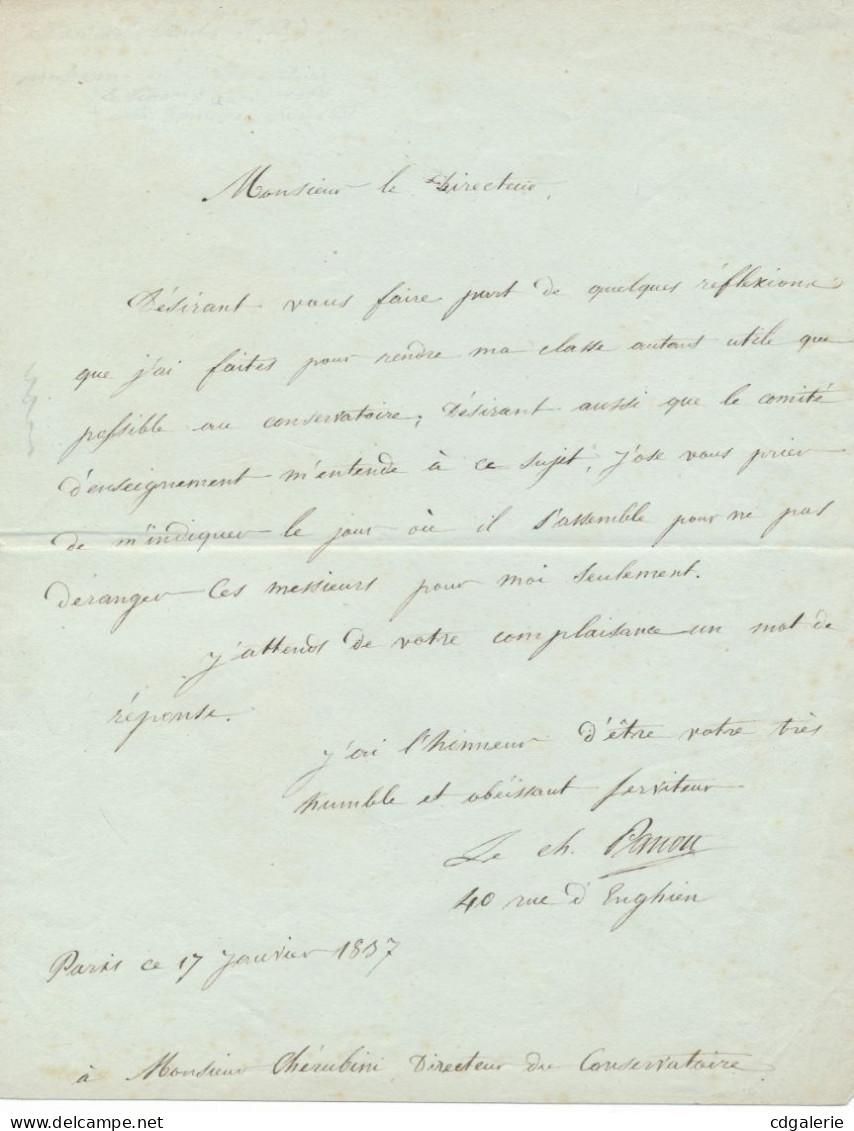 Monsieur le Directeur,
Désirant vous faire part de quelques réflexions
que j'ai faites pour rendre ma classe autant utile que
possible au conservatoire, Désirant aussi que le comité
d'enseignement m'entende à ce sujet, j'ose vous prier
de m'indiquer le jour où il s'assemble pour ne pas
deranger ces messieurs pour moi seulement.
j'attends de votre complaisance un mot de
réponse.
j'ai l'honneur d'être votre très
humble et obéissant serviteur
Le ch.
40 rue d'Enghien
Paris ce 17 Janvier 1837
à Monsieur Chérubini Directeur du Conservatoire.
cdgalerie